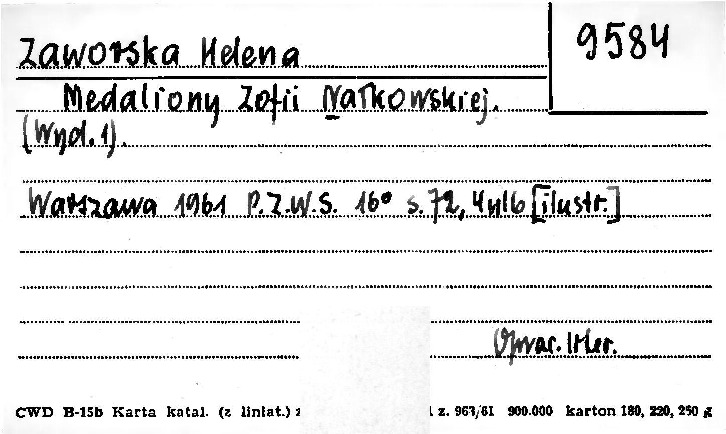 9584
Zaworska Helena
Medaliony Zofii Nałkowskiej.
(Wyd. 1).
Warszawa 1961 P.Z.W.S. 16° s. 72, 4 nlb [ilustr.]
Oprac. liter.
CWD B-15b Karta katal. (z liniat.) z. 963/61 900.000 karton 180, 220, 250 g